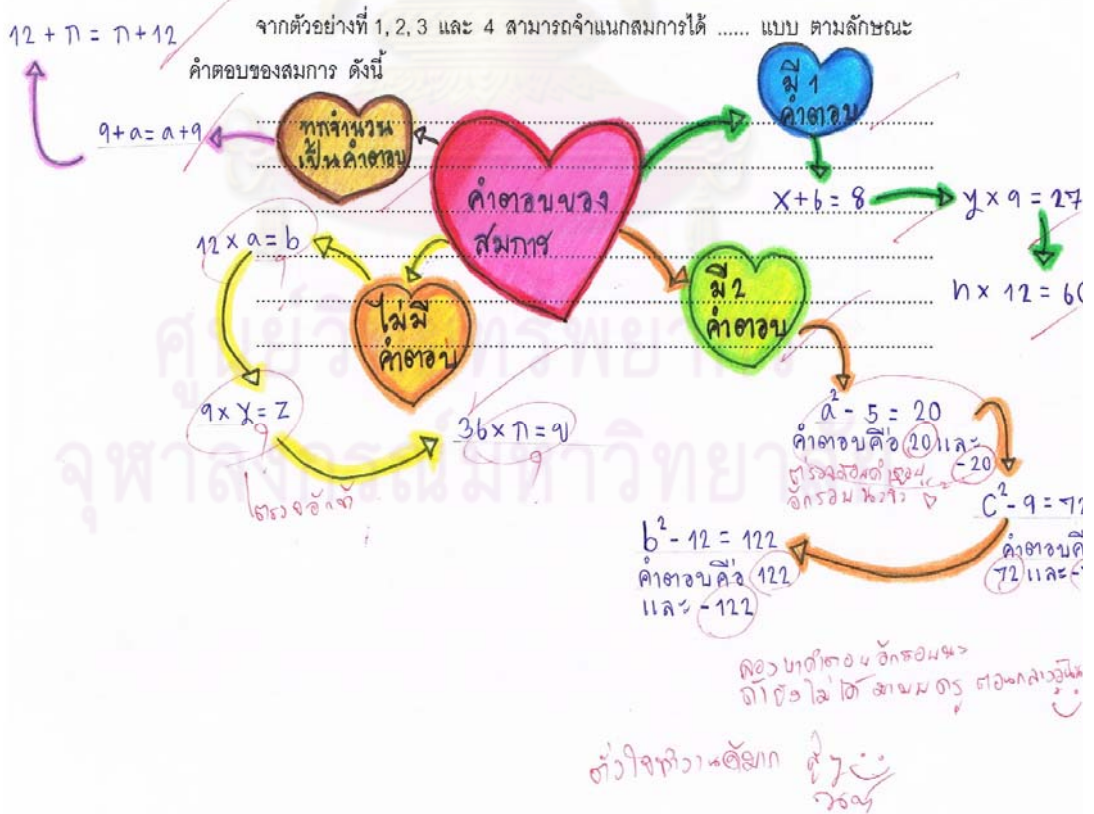 จากตัวอย่างที่ 1, 2, 3 และ 4 สามารถจำแนกสมการได้ ...... แบบ ตามลักษณะ
คำตอบของสมการ ดังนี้
12 + ก = ก + 12
9 + a = a + 9
ทุกจำนวน
เป็นคำตอบ
คำตอบของ
สมการ
มี 1
คำตอบ
x + 6 = 8
y × 9 = 27
h × 12 = 60
12 × a = b
ไม่มี
คำตอบ
มี 2
คำตอบ
9 × y = z
36 × ก = ข
a² - 5 = 20
คำตอบคือ 20 และ
-20
ตรวจสอบคำตอบ
อีกรอบนะจ๊ะ
c² - 9 = 72
คำตอบคือ
72 และ -
b² - 12 = 122
คำตอบคือ 122
และ -122
ตรวจอีกที
ลองหาคำตอบอีกรอบนะ
ถ้ายังไม่ได้ มาพบครู ตอนกลางวัน
ตั้งใจทำงานดีมาก
ศูนย์วิทยทรัพยากร
จุฬาลงกรณ์มหาวิทยาลัย